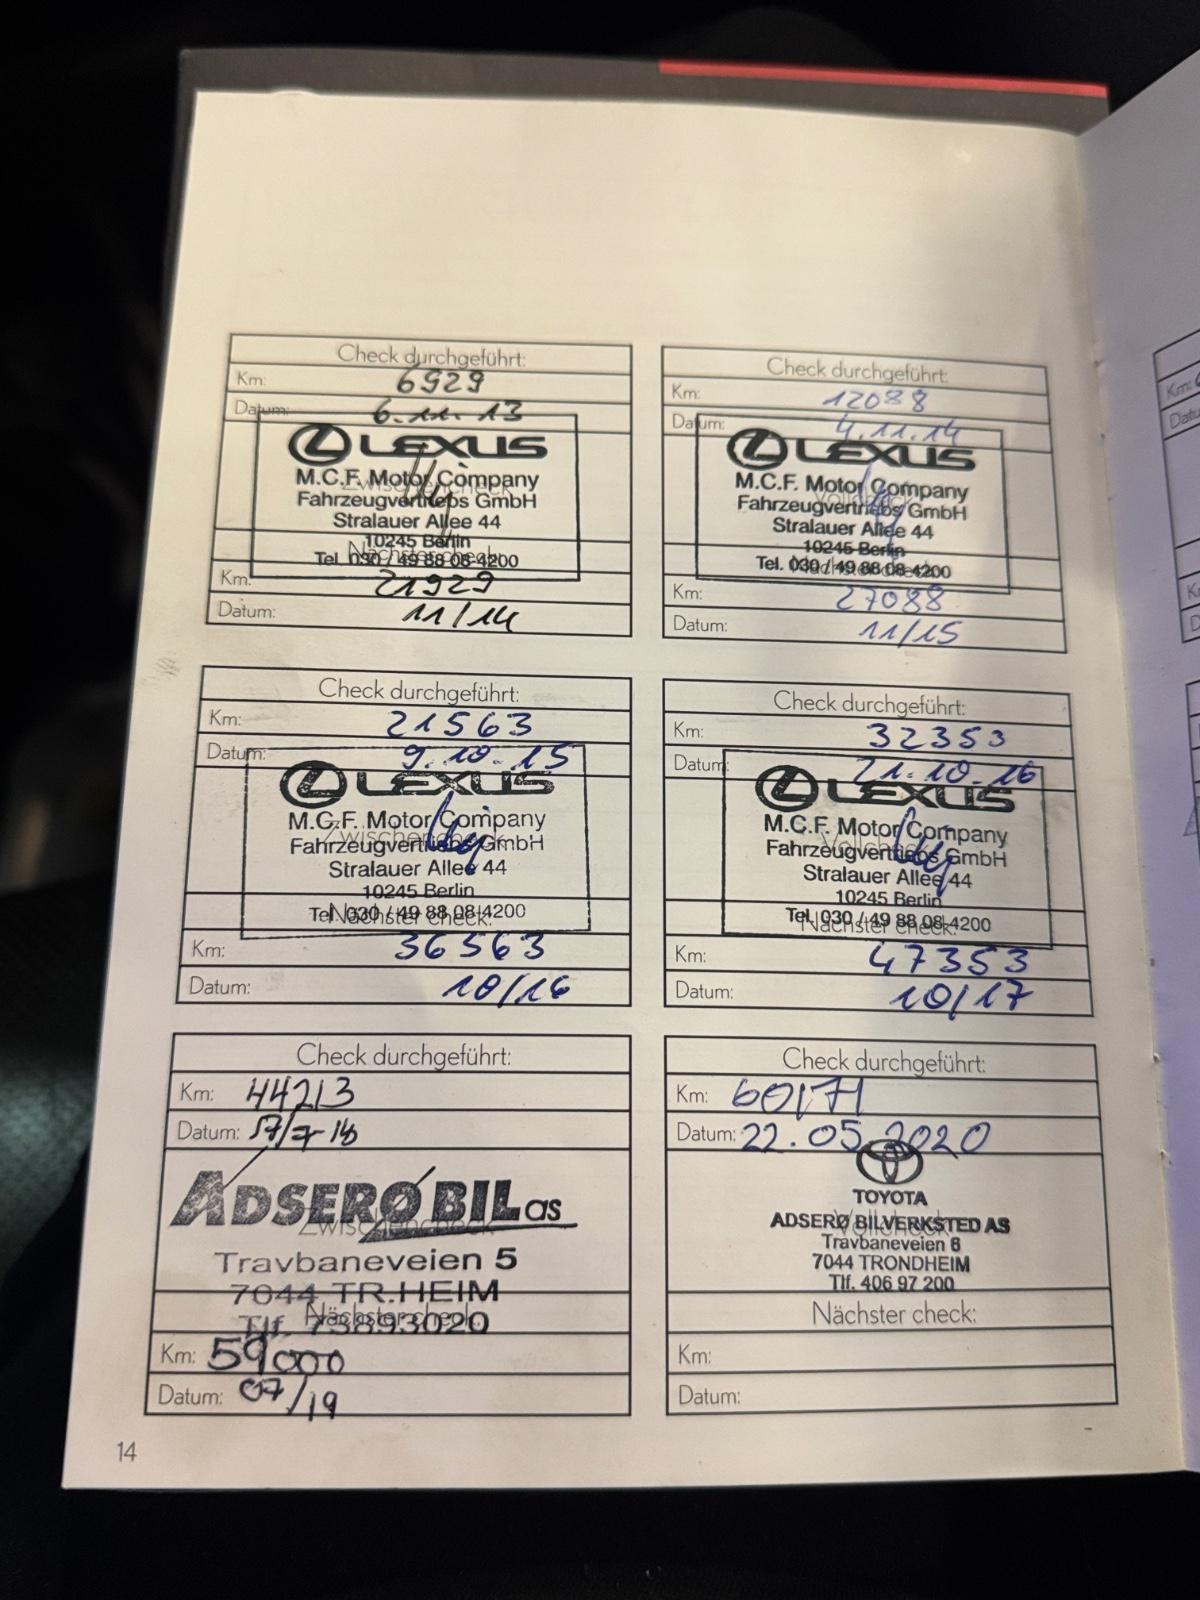 Check durchgeführt:
Km: 6929
Datum: 6.11.13
LEXUS
M.C.F. Motor Company
Zwischencheck
Fahrzeugvertriebs GmbH
Stralauer Allee 44
10245 Berlin
Nächster check:
Tel. 030 / 49 88 08-4200
Km: 21929
Datum: 11/14
Check durchgeführt:
Km: 12088
Datum: 4.11.14
LEXUS
M.C.F. Motor Company
Vollcheck
Fahrzeugvertriebs GmbH
Stralauer Allee 44
10245 Berlin
Tel. 030 / 49 88 08-4200
Nächster check:
Km: 27088
Datum: 11/15
Check durchgeführt:
Km: 21563
Datum: 9.10.15
LEXUS
M.C.F. Motor Company
Zwischencheck
Fahrzeugvertriebs GmbH
Stralauer Allee 44
10245 Berlin
Tel. 030 / 49 88 08-4200
Nächster check:
Km: 36563
Datum: 10/16
Check durchgeführt:
Km: 32353
Datum: 21.10.16
LEXUS
M.C.F. Motor Company
Vollcheck
Fahrzeugvertriebs GmbH
Stralauer Allee 44
10245 Berlin
Tel. 030 / 49 88 08-4200
Nächster check:
Km: 47353
Datum: 10/17
Check durchgeführt:
Km: 44213
Datum: 17/7-18
ADSERØ BIL as
Zwischencheck
Travbaneveien 5
7044 TR.HEIM
Nächster check:
Tlf. 73893020
Km: 59000
Datum: 07/19
Check durchgeführt:
Km: 60171
Datum: 22.05.2020
TOYOTA
ADSERØ BILVERKSTED AS
Vollcheck
Travbaneveien 6
7044 TRONDHEIM
Tlf. 406 97 200
Nächster check:
Km:
Datum:
14